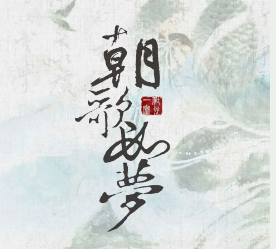 朝歌如夢